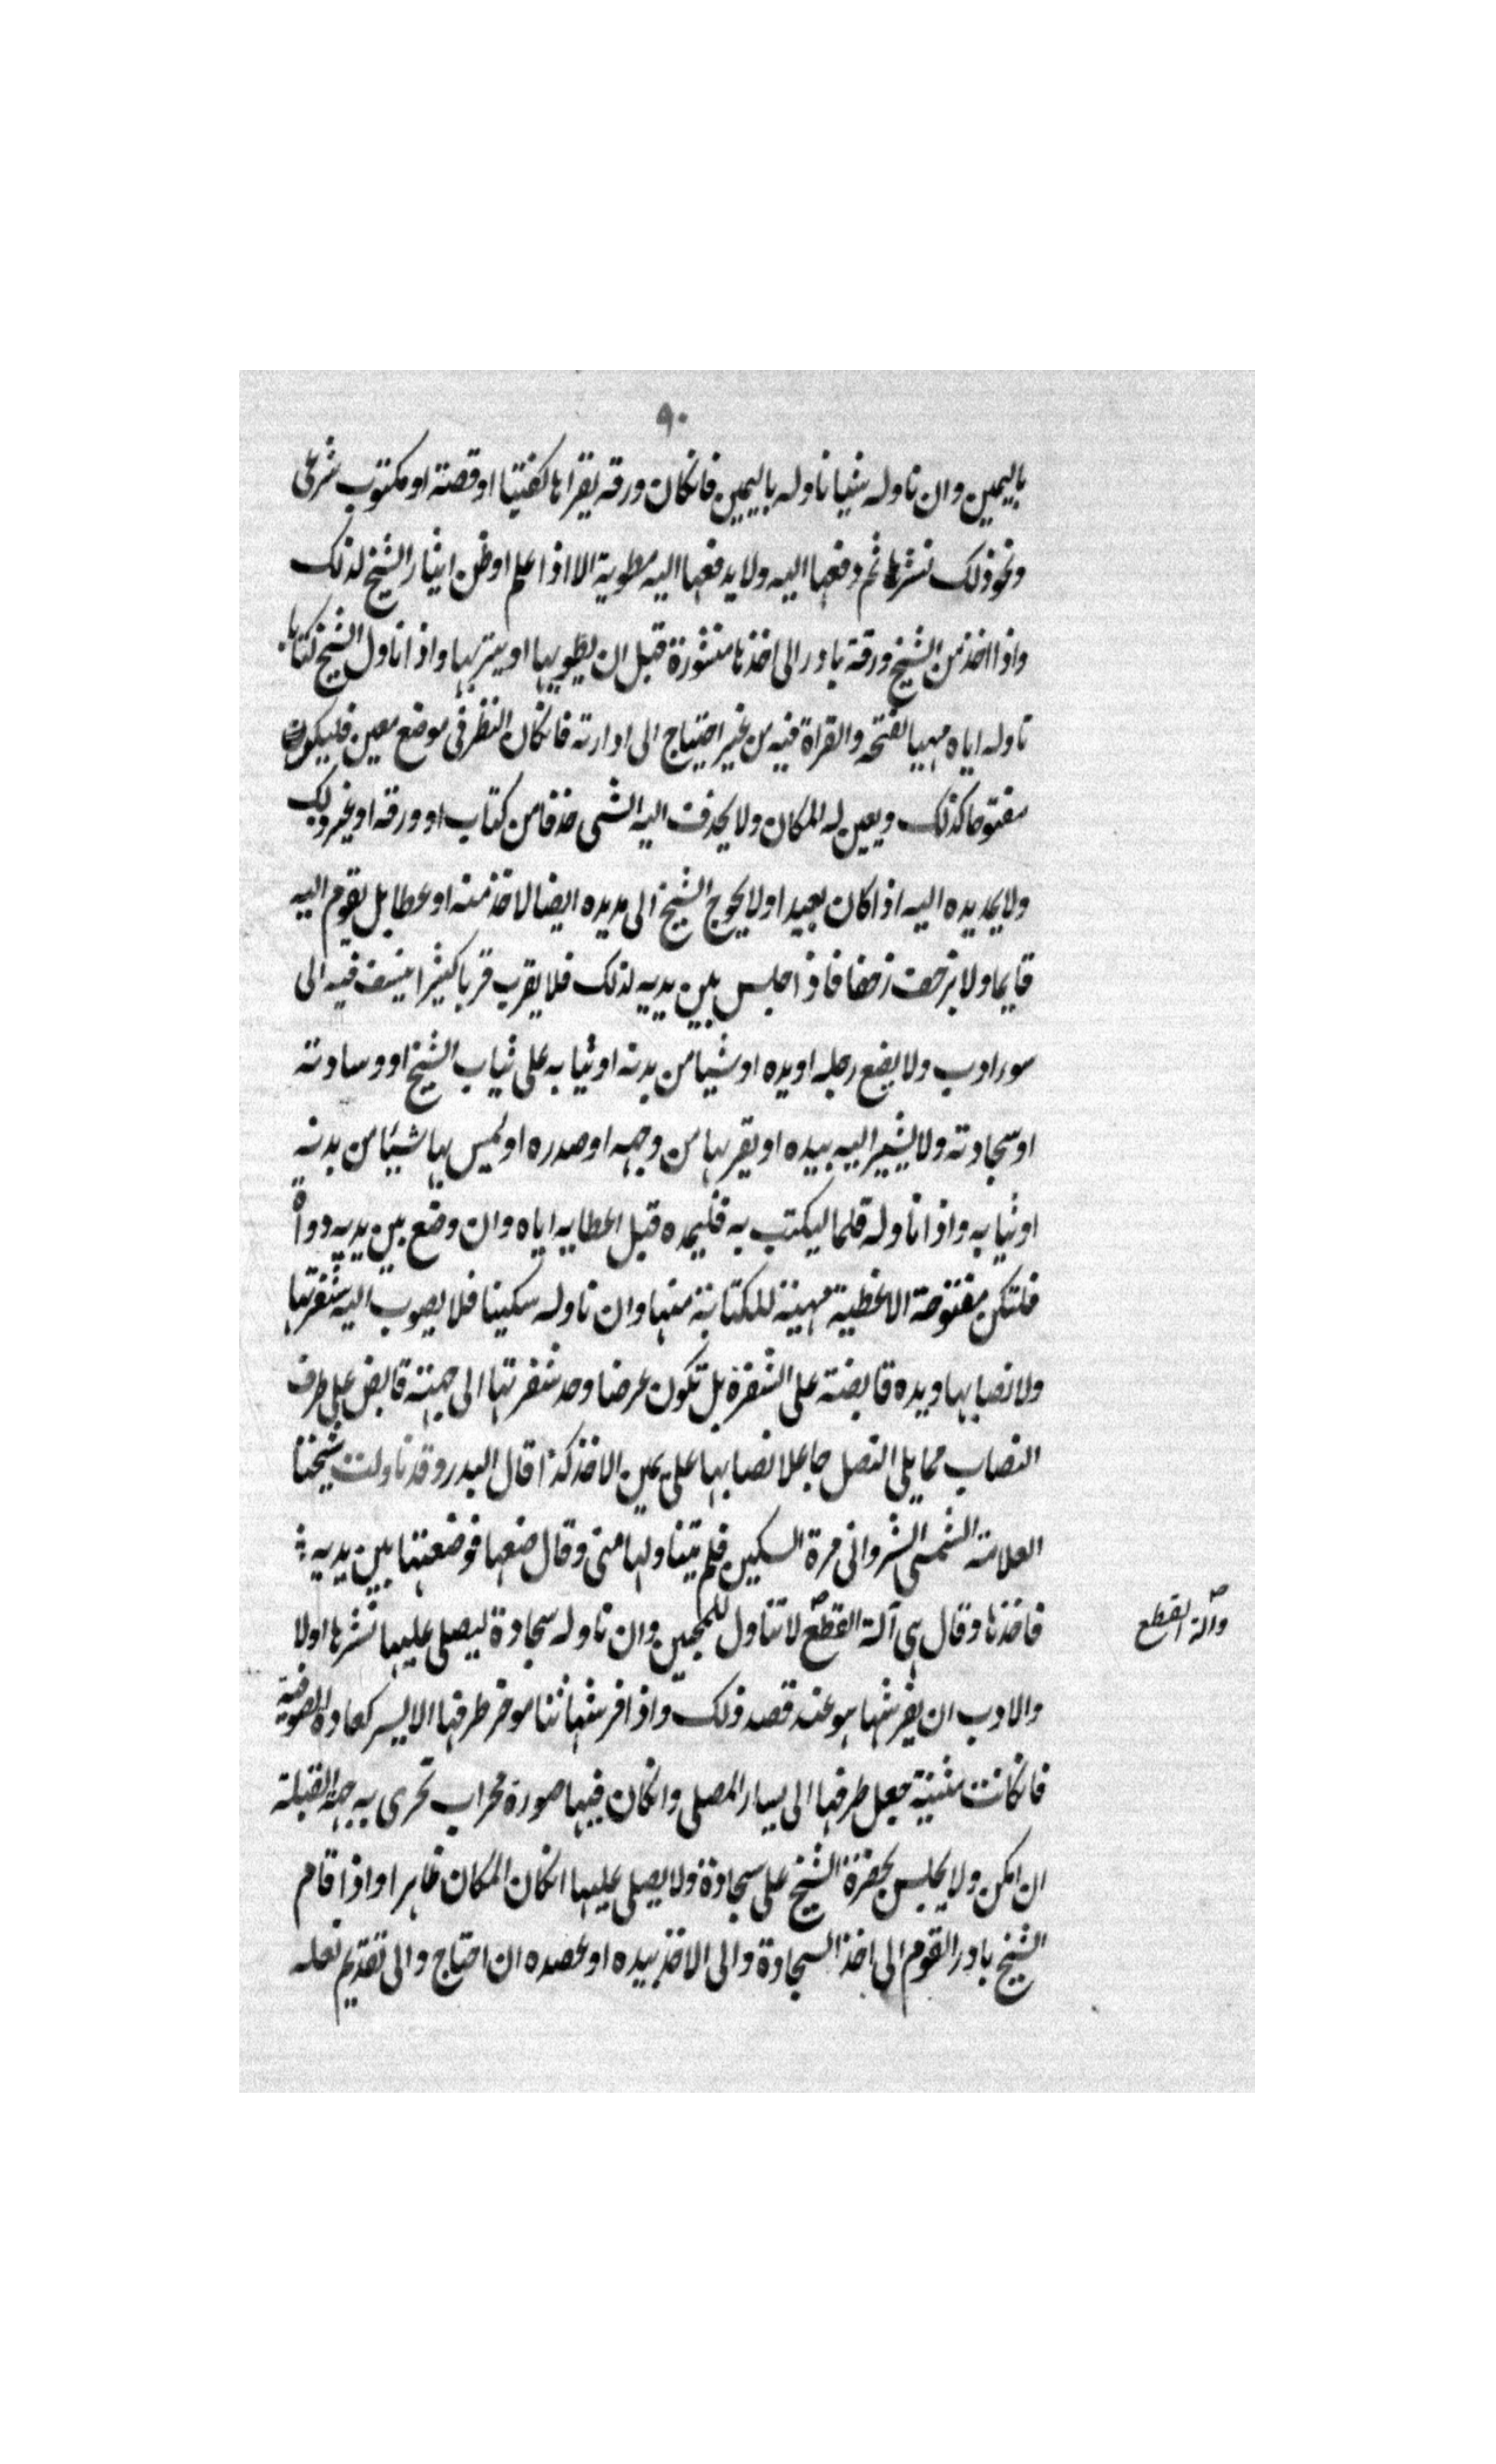 ٩٠
باليمين وان ناوله شيا ناوله باليمين فانكان ورقه يقراها كفتيا او قصته او مكتوب شرعي
ونحو ذلك نشرها ثم دفعها اليه ولا يدفعها اليه مطوية الا اذا علم او ظن ايثار الشيخ لذلك
واذا اخذ من الشيخ ورقة بادر الى اخذها منشورة قبل ان يطويها او يتربها واذا ناول الشيخ كتابا
ناوله اياه مهيا لفتحه والقراة فيه من غير احتياج الى ادارته فانكان النظر في موضع معين فليكون
مفتوحا كذلك ويعين له المكان ولا يحذف اليه الشي حذفا من كتاب او ورقه او غير ذلك
ولا يمد يده اليه اذا كان بعيدا ولا يحوج الشيخ الى مد يده ايضا لاخذ منه او عطا بل يقوم اليه
قايما ولا يزحف زحفا فاذا جلس بين يديه لذلك فلا يقرب قربا كثيرا ينسف فيه الى
سور ادب ولا يضع رجله او يده او شيا من بدنه او ثيابه على ثياب الشيخ او وسادته
او سجادته ولا يشير اليه بيده او يقربها من وجهه او صدره او يمس بها شيئا من بدنه
او ثيابه واذا ناوله قلما ليكتب به فليمده قبل اعطايه اياه وان وضع بين يديه دواة
فلتكن مفتوحة الاغطية مهيئة للكتابة منها وان ناوله سكينا فلا يصوب اليه شفرتها
ولا نصابها ويده قابضة على الشفرة بل تكون عرضا وحد شفرتها الى جهته قابض على طرف
النصاب مما يلى النصل جاعلا نصابها على يمين الاخذ كذا قال البدر وقد ناولت شيخنا
العلامة الشمس الشرواني مرة السكين فلم يتناولها مني وقال ضعها فوضعتها بين يديه
فاخذها وقال هي آلة القطع لا تناول للمحبين وان ناوله سجادة ليصلى عليها نشرها اولا
وآلة القطع
والادب ان يفرشها هو عند قصد ذلك واذا فرشها ثنا موخر طرفها الايسر كعادة الصوفية
فانكانت مثنية جعل طرفها الى يسار المصلى وانكان فيها صورة محراب تحرى به جهة القبلة
ان امكن ولا يجلس بحضرة الشيخ على سجادة ولا يصلى عليها انكان المكان طاهرا واذا قام
الشيخ بادر القوم الى اخذ السجادة والى الاخذ بيده او عضده ان احتاج والى تقديم نعله